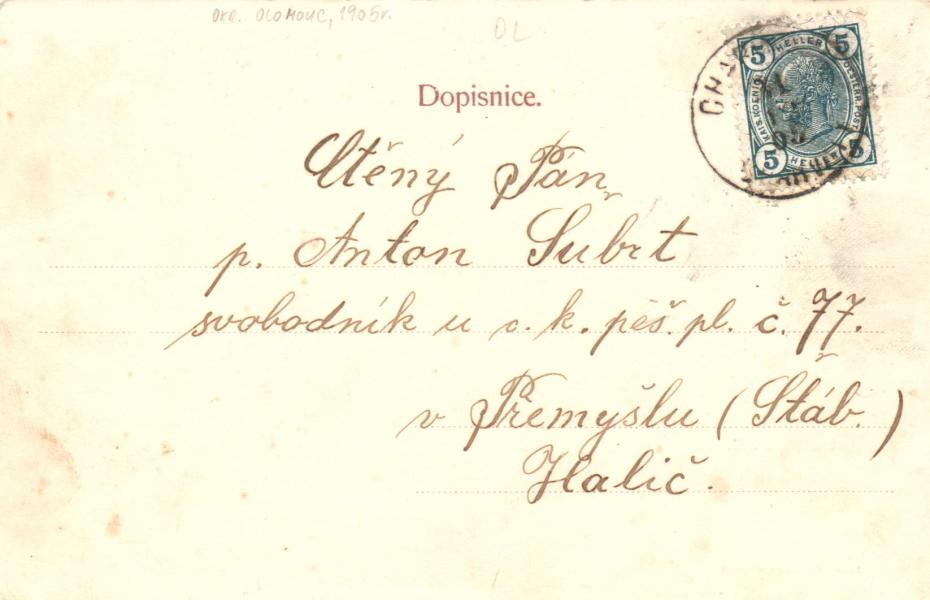 OKR. OLOMOUC, 1905r.
OL
Dopisnice.
5 HELLER 5
KAIS. KOENIGL. OESTERR. POST
5 HELLER 5
Ctěný Pán
p. Anton Šubrt
svobodník u c. k. pěš. pl. č. 77.
v Přemyšlu (Štáb.)
Halič.